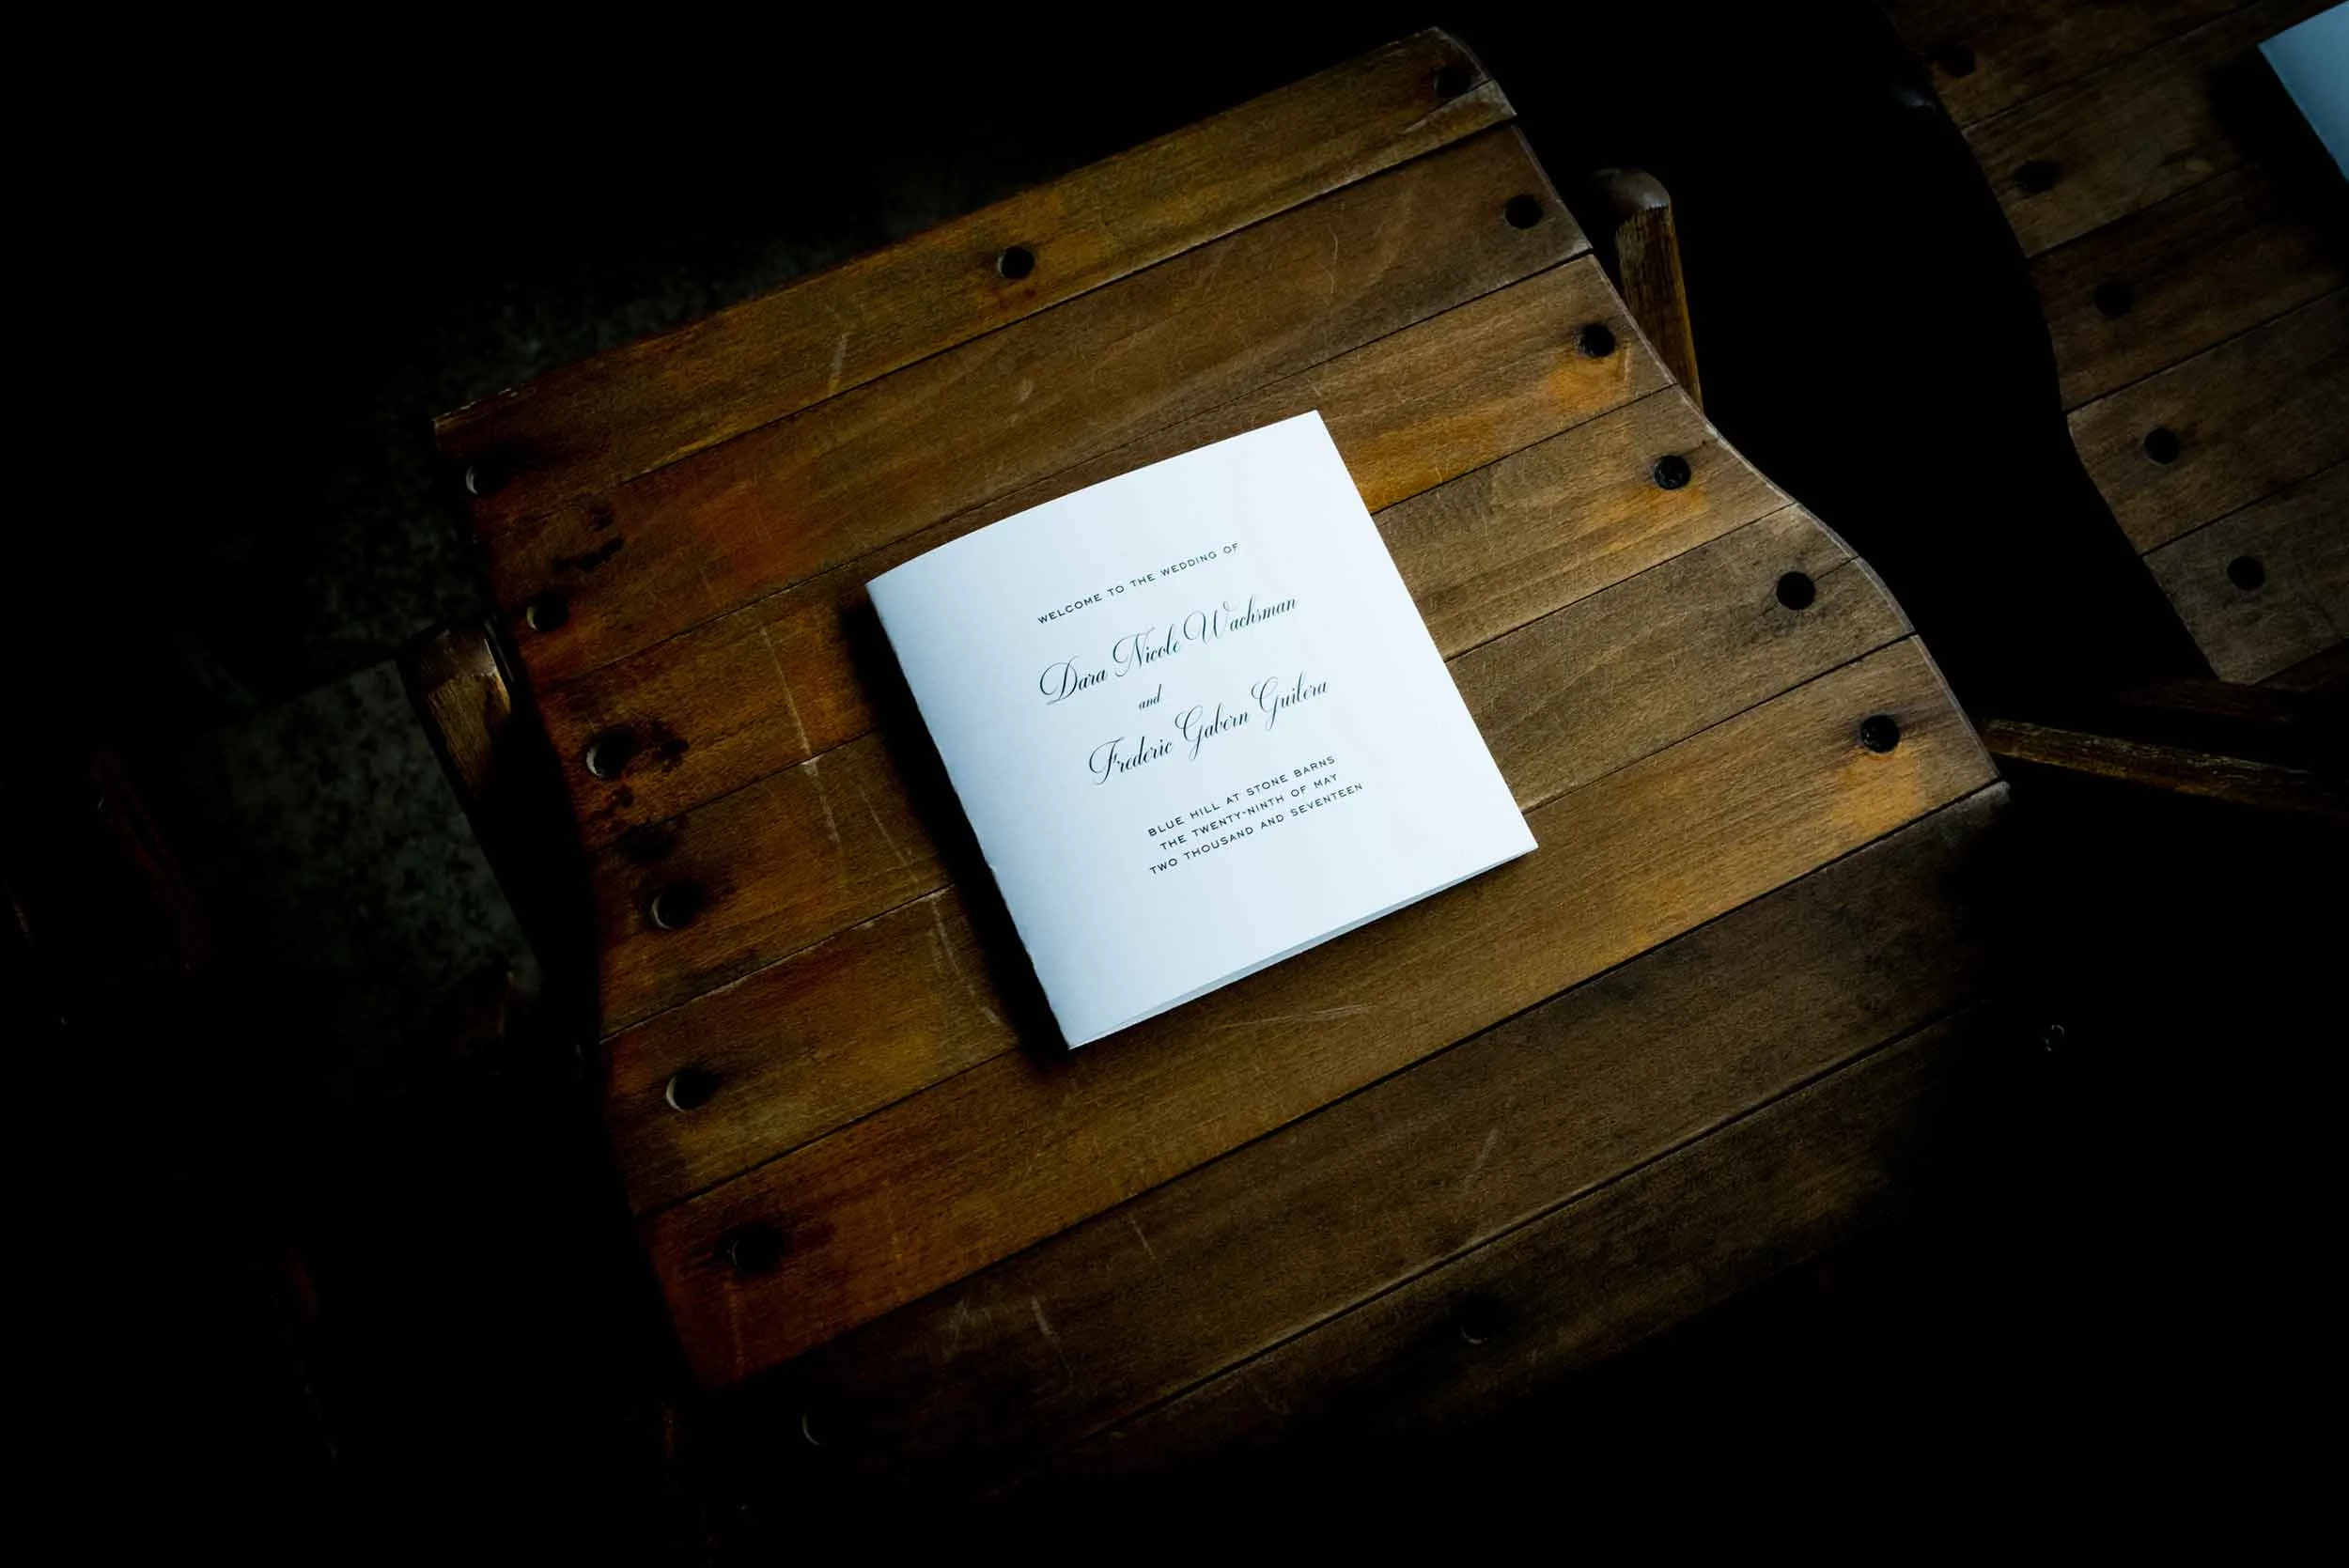 WELCOME TO THE WEDDING OF
Dara Nicole Wachsman
and
Frederic Gabern Guilera
BLUE HILL AT STONE BARNS
THE TWENTY-NINTH OF MAY
TWO THOUSAND AND SEVENTEEN